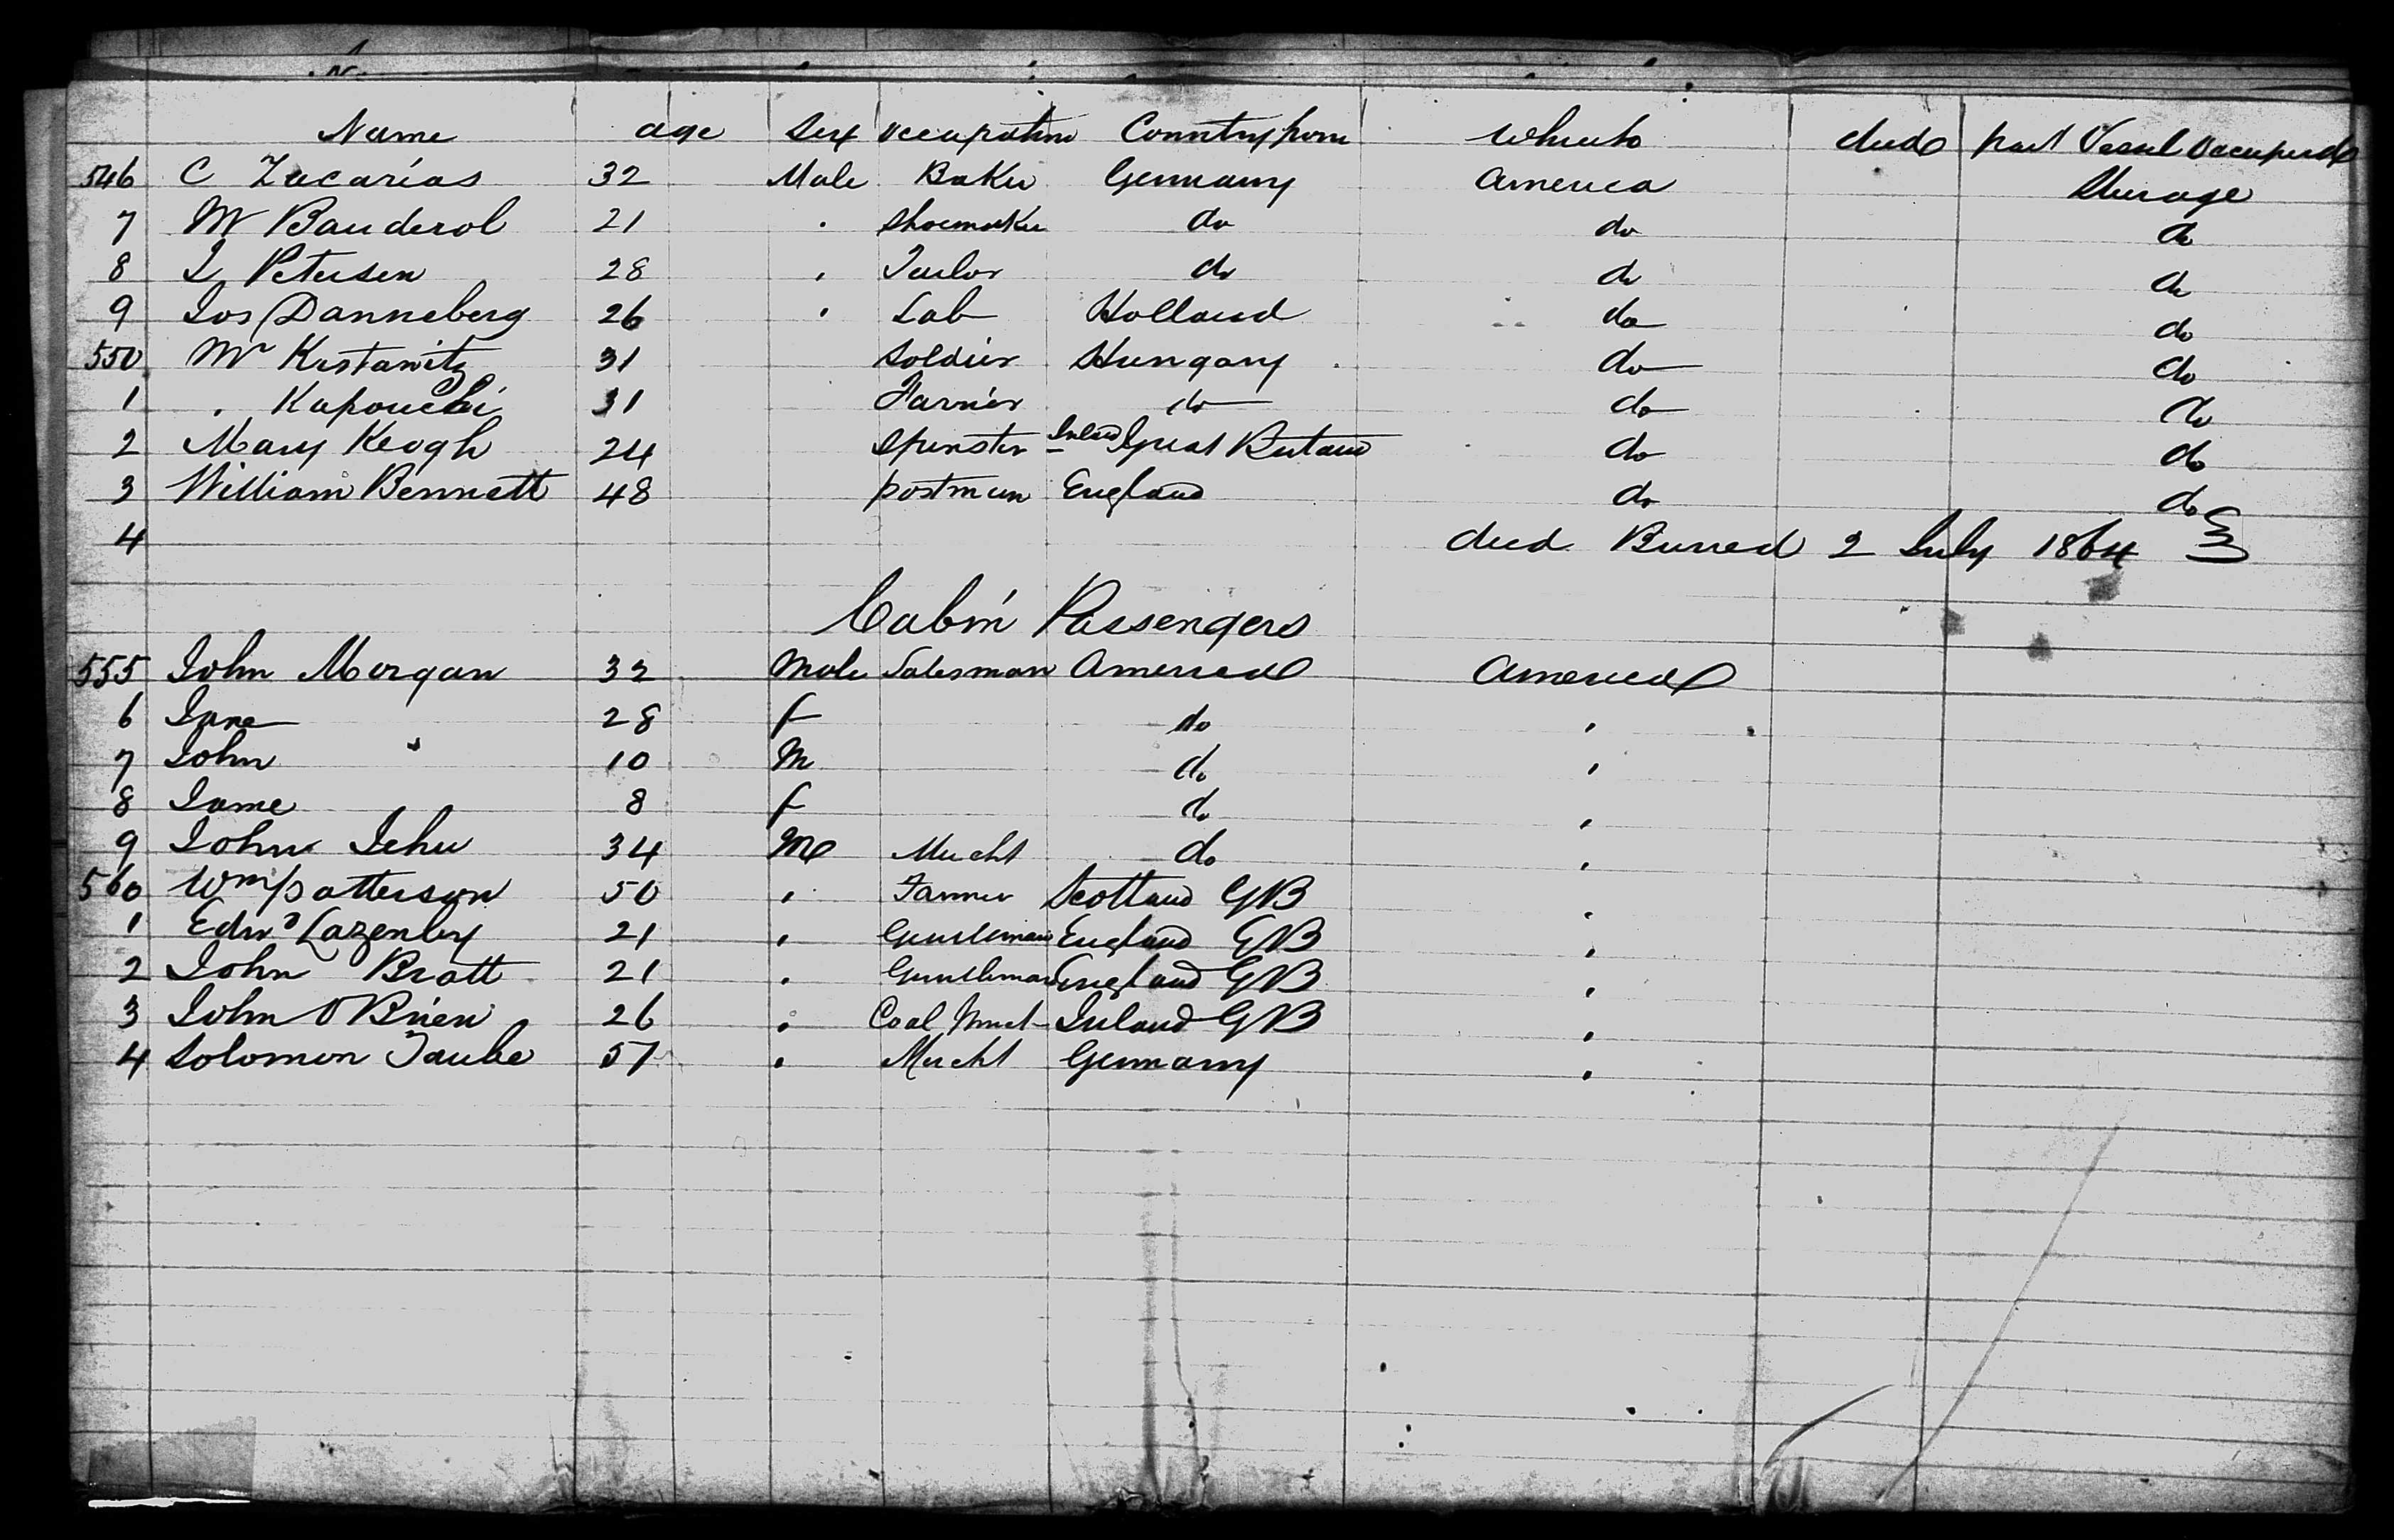 Name age Sex Occupation Country from Where to died part Vessel Occupied
546 C Zacarias 32 Male Baker Germany America Steerage
7 M Bauderol 21 " Shoemaker do do do
8 I Petersen 28 " Tailor do do do
9 Jos Danneberg 26 " Lab Holland do do
550 Mr Kustawitz 31 Soldier Hungary do do
1 " Kapouchi 31 Farrier do do do
2 Mary Keogh 24 Spinster Ireland Great Britain do do
3 William Bennett 48 postman England do do
4 died Burred 2 July 1864
Cabin Passengers
555 John Morgan 32 Male Salesman America America
6 Jane 28 f do "
7 John " 10 M do "
8 Jame 8 f do "
9 John Jehu 34 M Mercht do "
560 Wm patterson 50 " Farmer Scotland GB "
1 Edwd Lazenby 21 " Gentleman England GB "
2 John Bratt 21 " Gentleman England GB "
3 John O Brien 26 " Coal Merct Ireland GB "
4 Solomon Taube 57 " Mercht Germany "